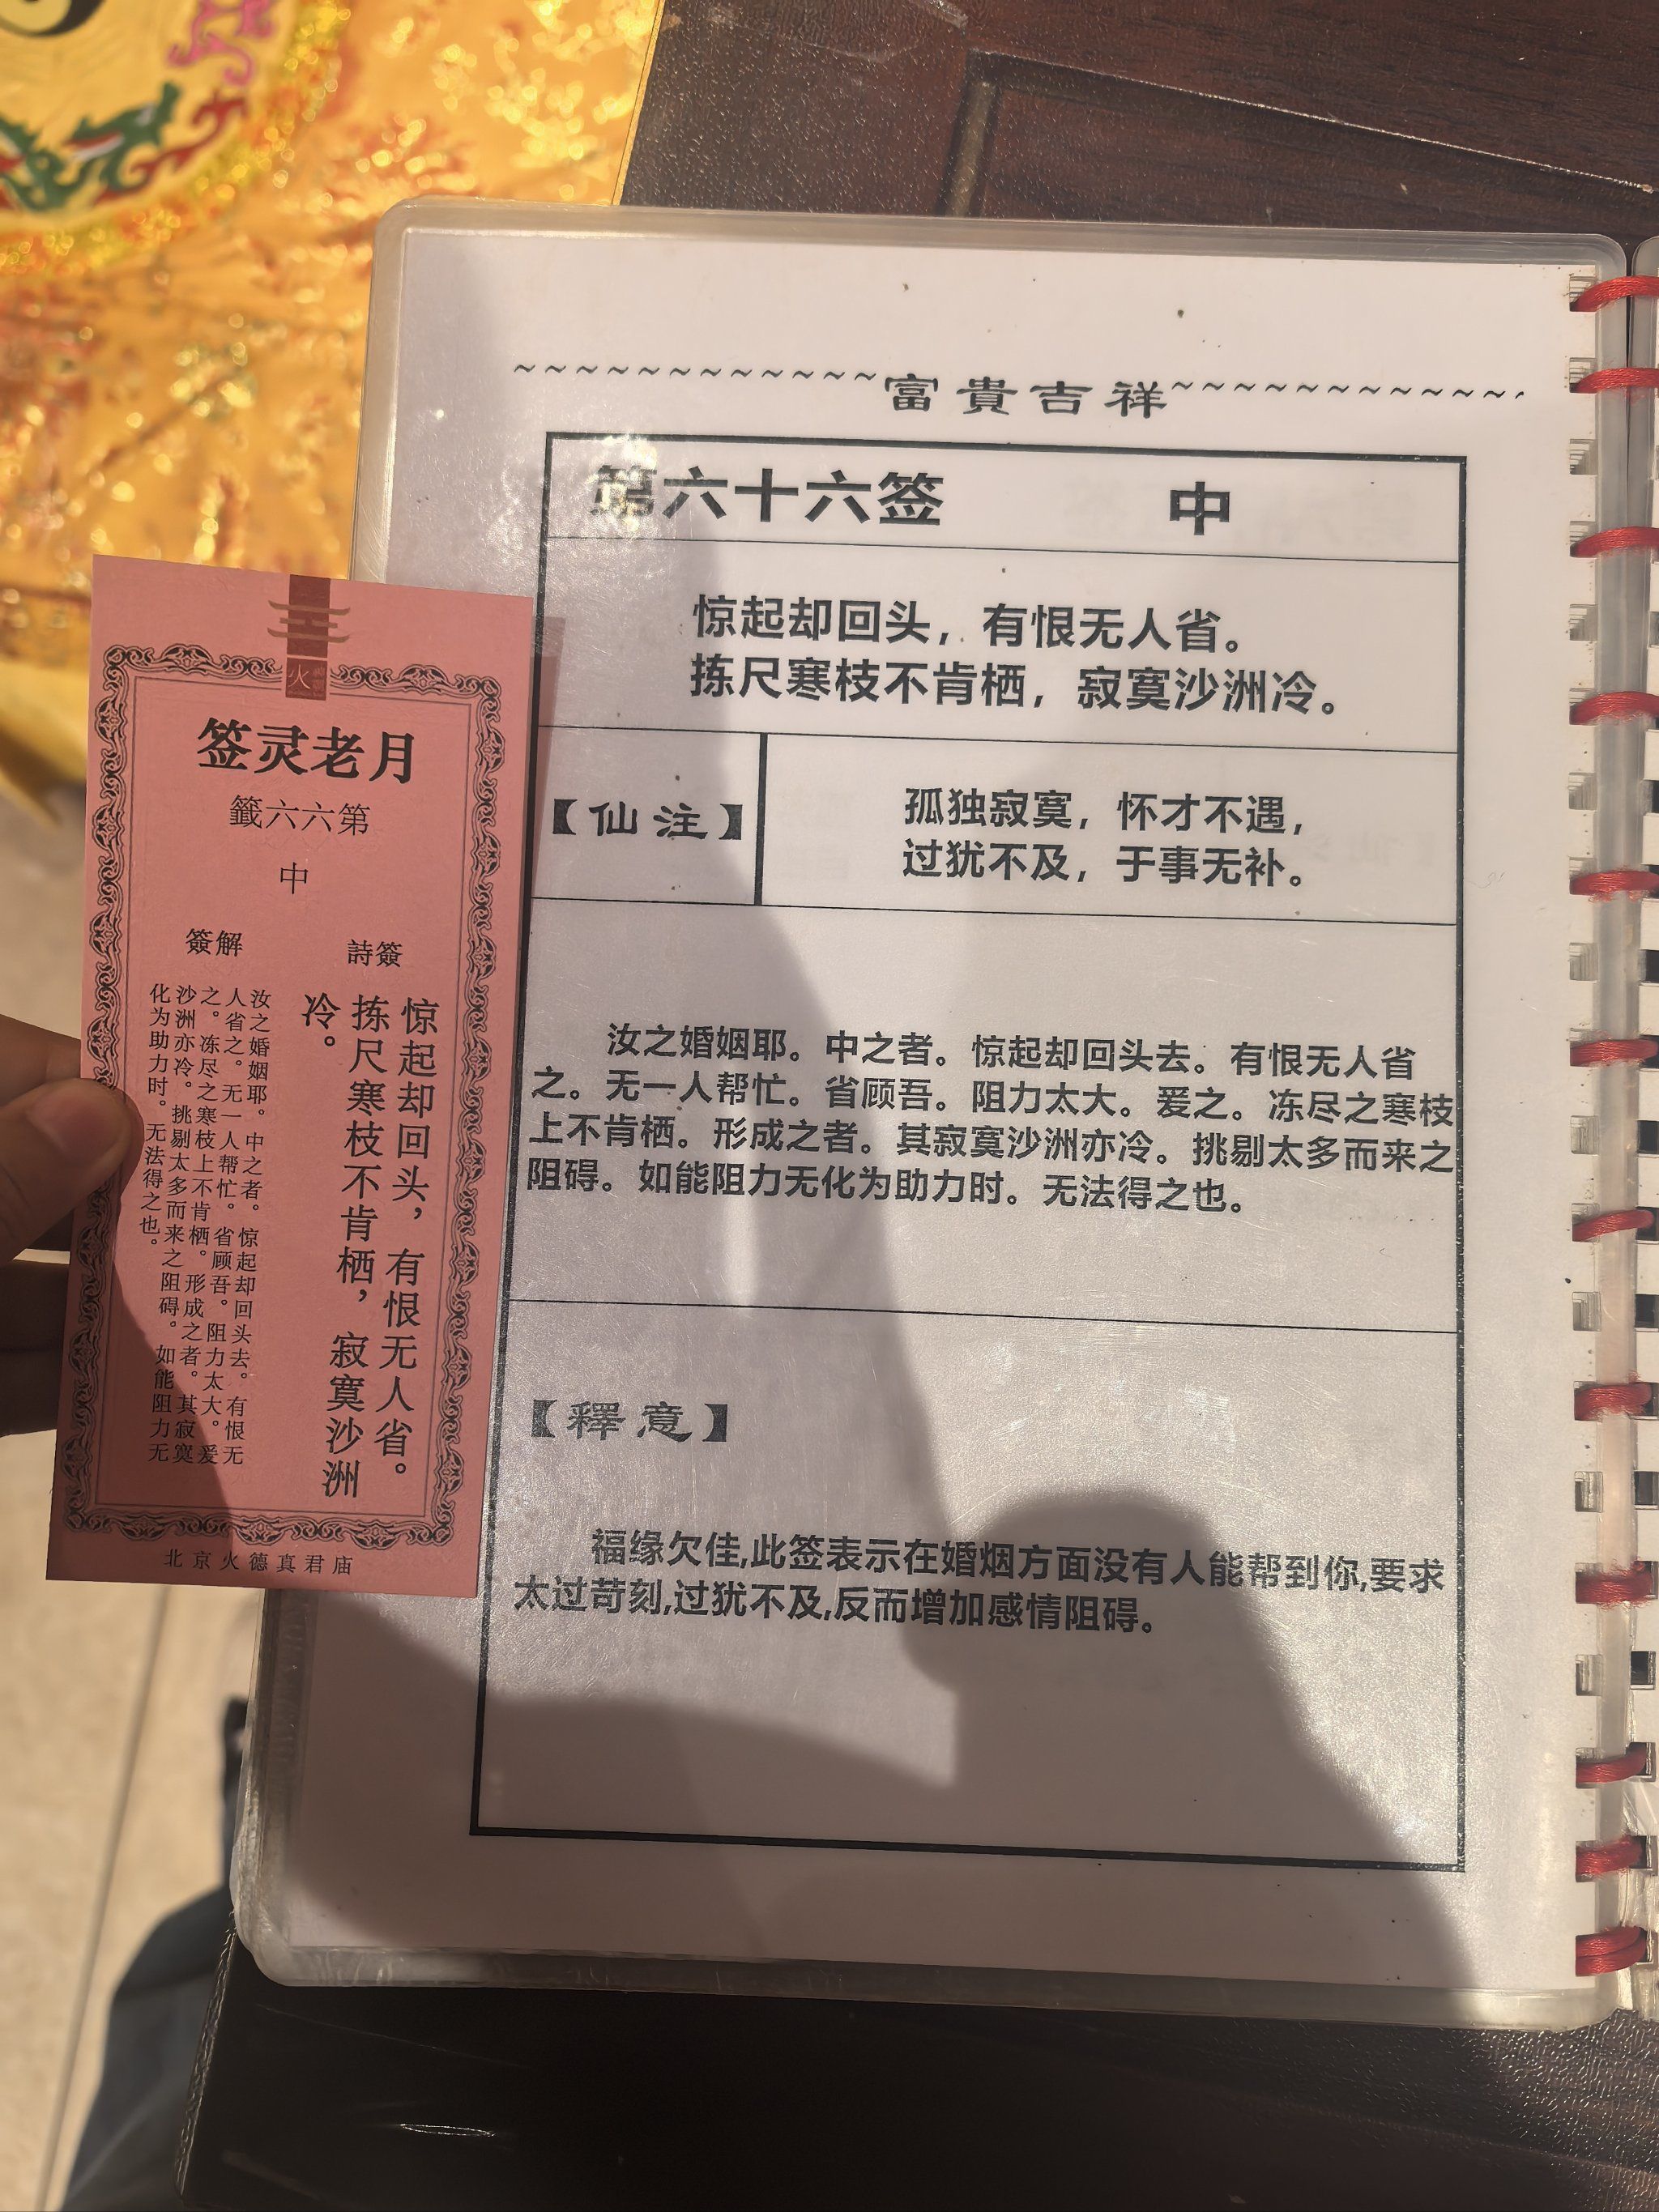 富貴吉祥
第六十六签 中
惊起却回头，有恨无人省。
拣尺寒枝不肯栖，寂寞沙洲冷。
【仙注】
孤独寂寞，怀才不遇，
过犹不及，于事无补。
汝之婚姻耶。中之者。惊起却回头去。有恨无人省
之。无一人帮忙。省顾吾。阻力太大。爰之。冻尽之寒枝
上不肯栖。形成之者。其寂寞沙洲亦冷。挑剔太多而来之
阻碍。如能阻力无化为助力时。无法得之也。
【釋意】
福缘欠佳,此签表示在婚烟方面没有人能帮到你,要求
太过苛刻,过犹不及,反而增加感情阻碍。
火
签灵老月
籤六六第
中
詩簽
惊起却回头，有恨无人省。
拣尺寒枝不肯栖，寂寞沙洲
冷。
簽解
汝之婚姻耶。中之者。惊起却回头去。有恨无
人省之。无一人帮忙。省顾吾。阻力太大。爰
之。冻尽之寒枝上不肯栖。形成之者。其寂寞
沙洲亦冷。挑剔太多而来之阻碍。如能阻力无
化为助力时。无法得之也。
北京火德真君庙